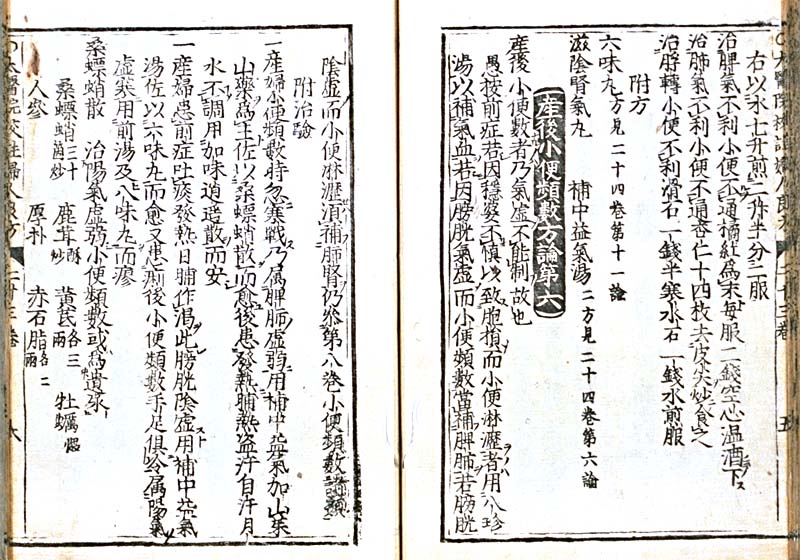 右以水七升煎二升半分三服
治脾氣不利小便不通橘紅爲末每服二錢空心温酒下
治肺氣不利小便不通杏仁十四枚去皮尖炒食之
治胞轉小便不利滑石一錢半寒水石一錢水煎服
附方
六味丸方見二十四卷第十一論
滋陰腎氣丸 補中益氣湯二方見二十四卷第六論
産後小便頻數方論第六
産後小便數者乃氣虛不能制故也
愚按前症若因穩婆不愼以致胞損而小便淋瀝者用八珍
湯以補氣血若因膀胱氣虛而小便頻數當補脾肺若膀胱
陰虛而小便淋瀝須補肺腎乃參第八卷小便頻數
附治驗
一産婦小便頻數時忽寒戰乃屬脾肺虛弱用補中益氣加山茱
山藥爲主佐以桑螵蛸散而愈後患發熱晡熱盜汗自汗月
水不調用加味逍遙散而安
一産婦患前症吐痰發熱日晡作渴此膀胱陰虛用補中益氣
湯佐以六味丸而愈又患痢後小便頻數手足俱冷屬陽氣
虛寒用前湯及八味丸而瘳
桑螵蛸散 治陽氣虛弱小便頻數或爲遺尿
桑螵蛸三十箇炒 鹿茸酥炒 黃芪各三兩 牡蠣煅
人參 厚朴 赤石脂各二兩